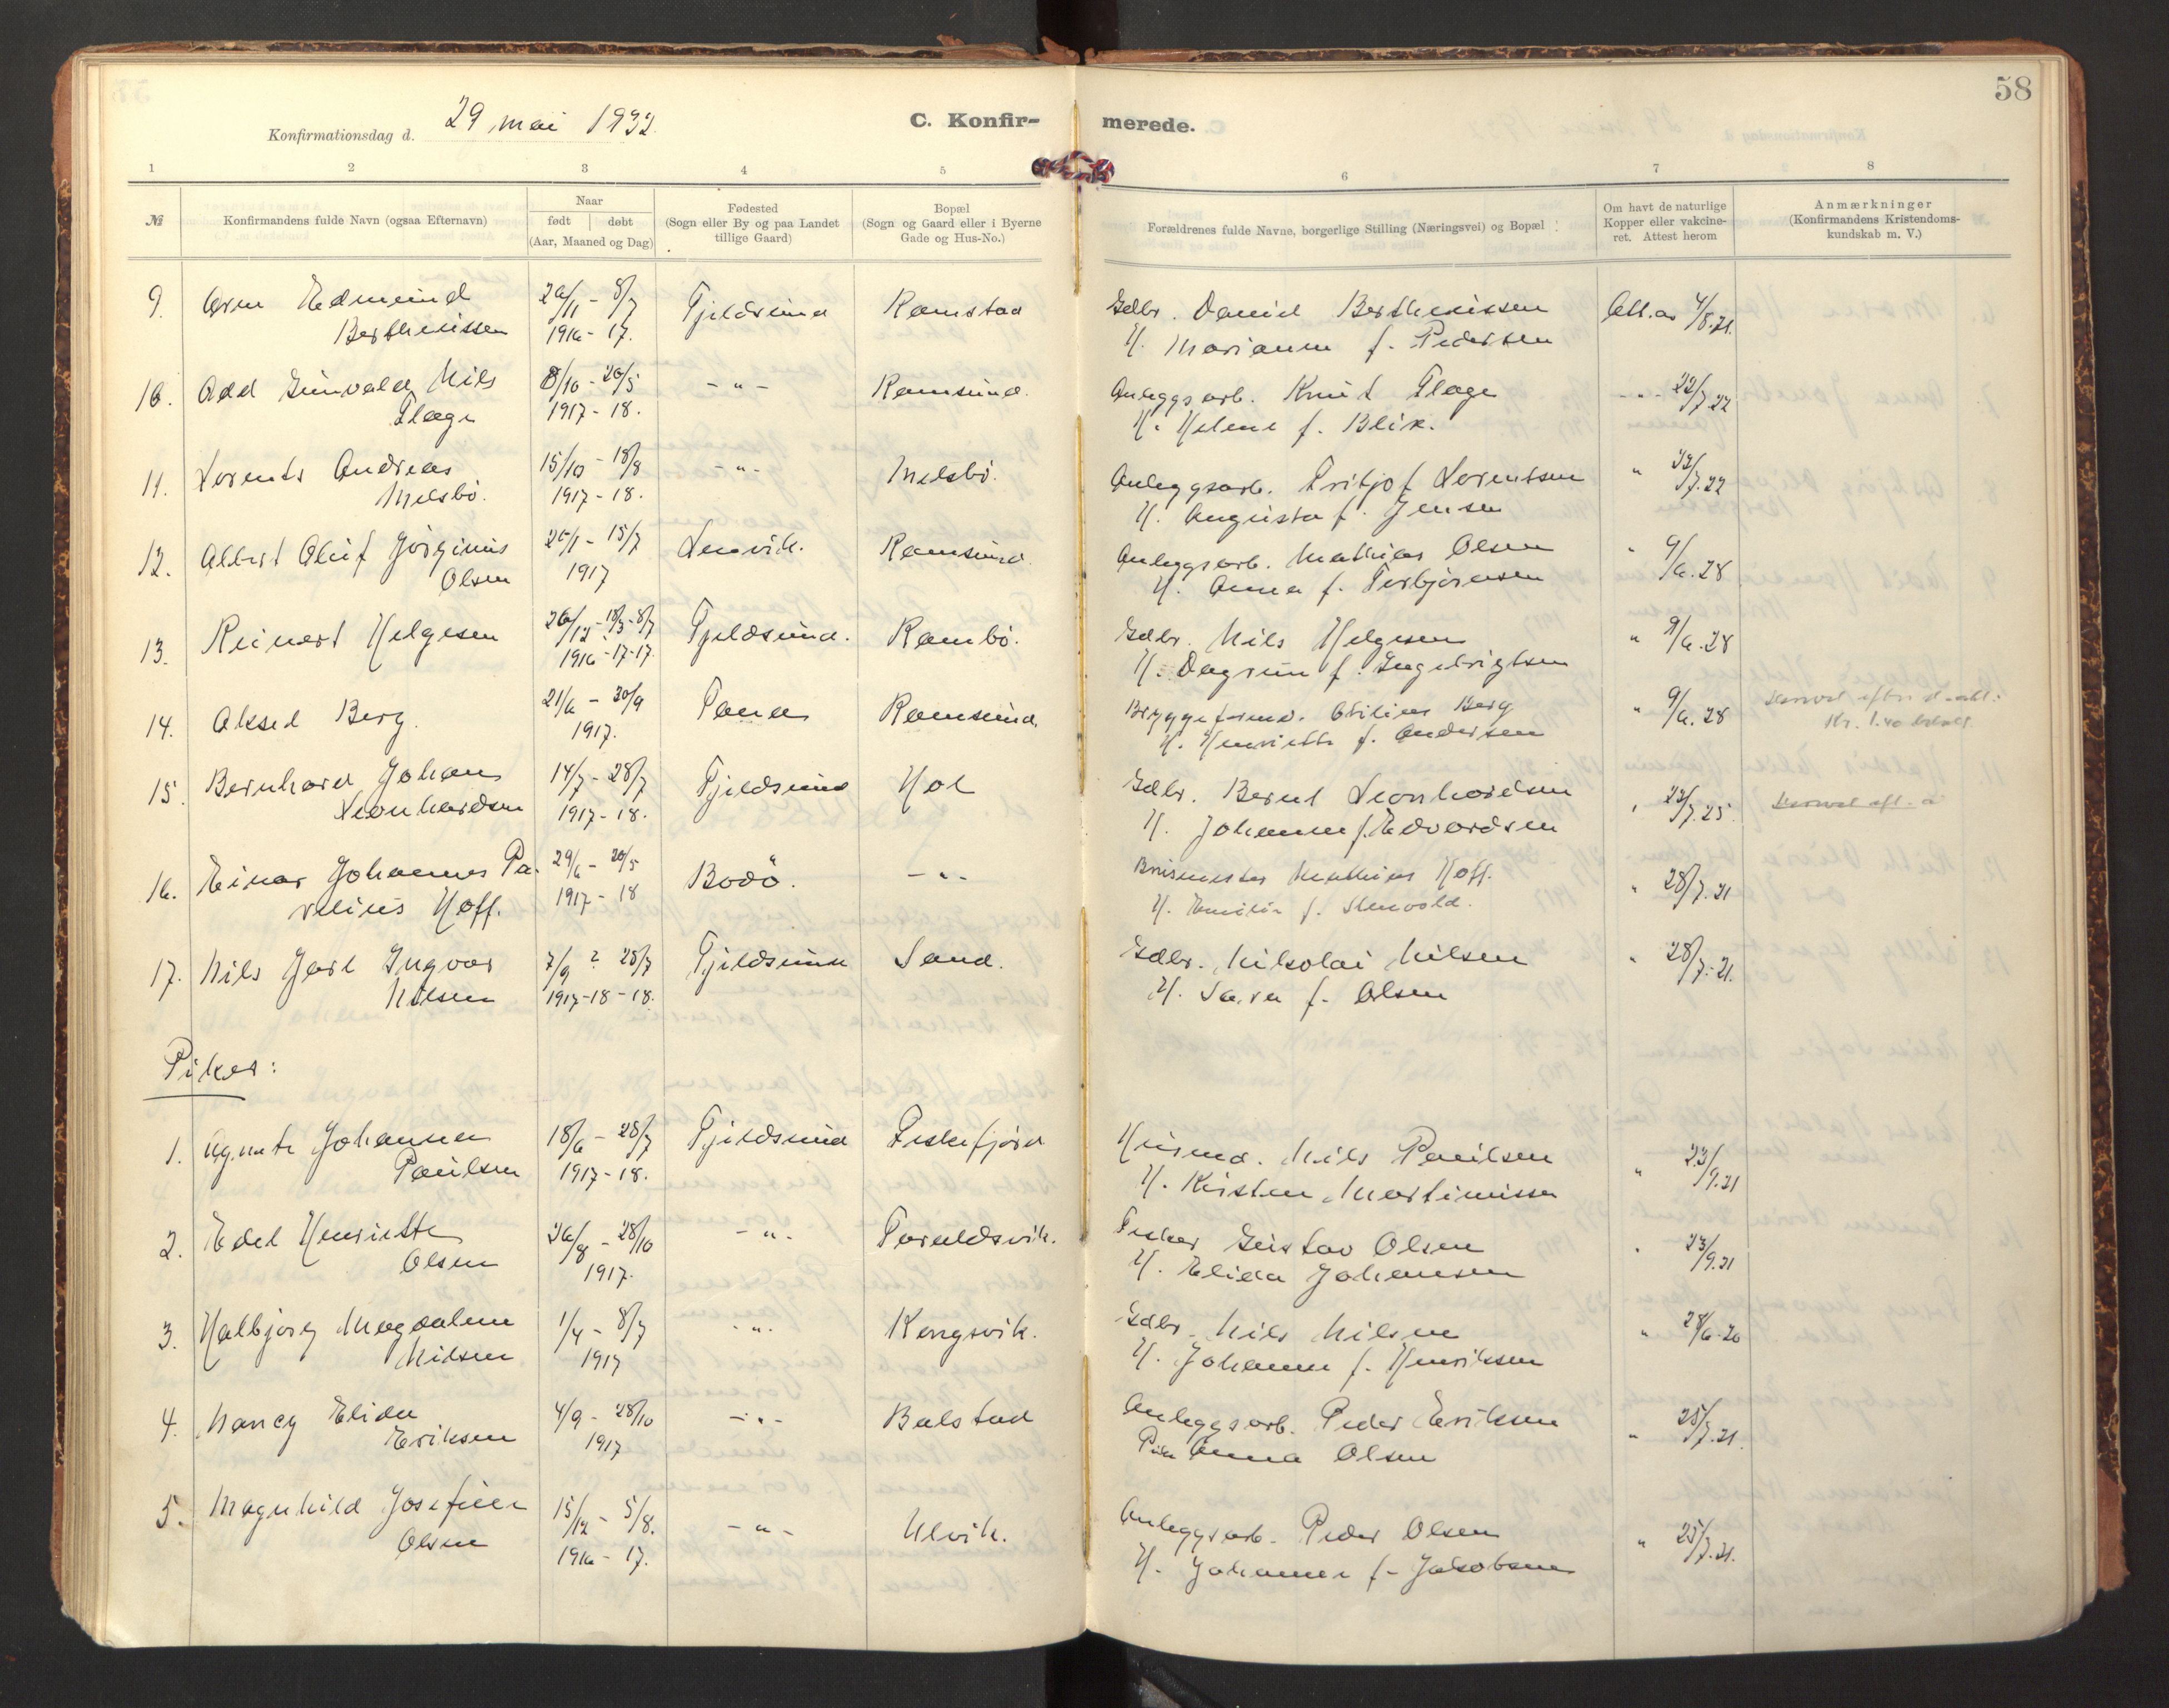 58
Konfirmationsdag d. 29 mai 1932.
C. Konfir- merede.
1 2 3 4 5 6 7 8
№ Konfirmandens fulde Navn (ogsaa Efternavn)
Naar
født døbt
(Aar, Maaned og Dag)
Fødested
(Sogn eller By og paa Landet
tillige Gaard)
Bopæl
(Sogn og Gaard eller i Byerne
Gade og Hus-No.)
Forældrenes fulde Navne, borgerlige Stilling (Næringsvei) og Bopæl
Om havt de naturlige
Kopper eller vakcine-
ret. Attest herom
Anmærkninger
(Konfirmandens Kristendoms-
kundskab m. V.)
9. Arm Edmund 26/11 - 8/7 Tjeldsund Ramstad Gdbr. Daniel Berthinissen Att. av 4/8.21.
Berthinissen 1916 - 17. H. Marianne f. Pedersen
10. Odd Gunvald Nils 8/10 - 20/5 - " - Ramsund. Anleggsarb. Knut Flage - " - 22/7.22
Flage 1917 - 18. H. Helene f. Blix.
11. Lorents Andreas 15/10 - 18/8 - " - Nilsbö. Anleggsarb. Fritjof Lorentsen " 22/7.22
Nilsbö. 1917 - 18. H. Augusta f. Jensen
12. Albert Oluf Jörginus 15/7 Lenvik. Ramsund. Anleggsarb. Mathias Olsen " 9/6.28
Olsen 1917 H. Anna f. Torbjörnsen
13. Reinert Helgesen 26/12 - 18/3 - 8/7 Tjeldsund. Rambö. Gdbr. Nils Helgesen " 9/6.28
1916 - 17-17. H. Dagrun f. Ingebrigtsen
14. Aksel Berg. 21/6 - 30/9 Tana Ramsund. Bryggeformd. Berg " 9/6.28
1917. H. Henriette f. Andersen Kr. 1.40
15. Bernhard Johan 14/7 - 28/7 Tjeldsund Hol Gdbr. Bernt Leonhardsen " 22/7.25
Leonhardsen 1917 - 18. H. Johanne f. Edvardsen
16. Einar Johannes Pa- 29/6 - 20/5 Bodö. - " - Mathias Hoff. " 28/7.21
relius Hoff. 1917 - 18 H. Emilie f. Stenvold.
17. Nils Jarl Ingvar 7/9 ? 28/7 Tjeldsund Sand. Gdbr. Nikolai Nilsen " 28/7.21.
Nilsen 1917-18-18. H. Sara f. Olsen
Piker:
1. Agnete Johanna 18/6 - 28/7 Tjeldsund Fiskefjord Husmd. Nils Paulsen " 23/9.21
Paulsen 1917 - 18. H. Kirsten Martinussen
2. Edel Henriette 26/8 - 28/10 - " - Foraldsvik. Fisker Gustav Olsen " 23/9.21
Olsen 1917. H. Elida Johansen
3. Halbjörg Magdalene 1/4 - 8/7 - " - Kongsvik. Gdbr. Nils Nilsen " 28/6.20
Nilsen 1917 H. Johanne f. Henriksen
4. Nancy Elida 4/9 - 28/10 - " - Balstad Anleggsarb. Peder Eriksen " 25/7.21.
Eriksen 1917 Pike Anna Olsen
5. Magnhild Josefine 15/12 - 5/8. - " - Ulvik. Anleggsarb. Peder Olsen " 25/7.21.
Olsen 1916 - 17. H. Johanne f. Jakobsen